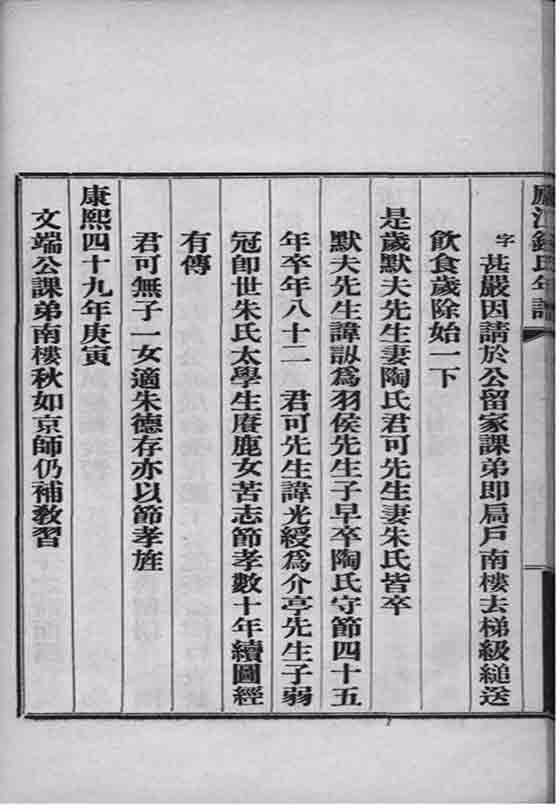 廬江錢氏年譜
字甚嚴因請於公留家課弟即扃戶南樓去梯級縋送
飲食歲除始一下
是歲默夫先生妻陶氏君可先生妻朱氏皆卒
默夫先生諱訒爲羽侯先生子早卒陶氏守節四十五
年卒年八十二 君可先生諱光綬爲介亭先生子弱
冠卽世朱氏太學生賡鹿女苦志節孝數十年續圖經
有傳
君可無子一女適朱德存亦以節孝旌
康熙四十九年庚寅
文端公課弟南樓秋如京師仍補教習